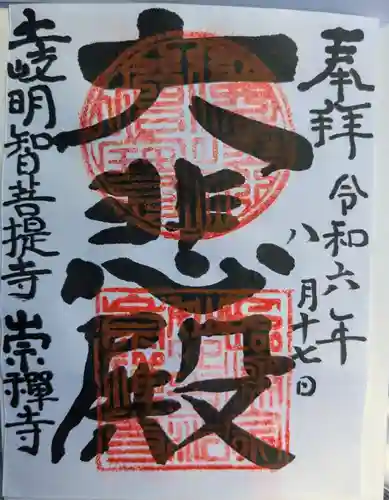 奉拝
令和六年
八月十七日
大悲殿
土岐明智菩提寺
崇禅寺